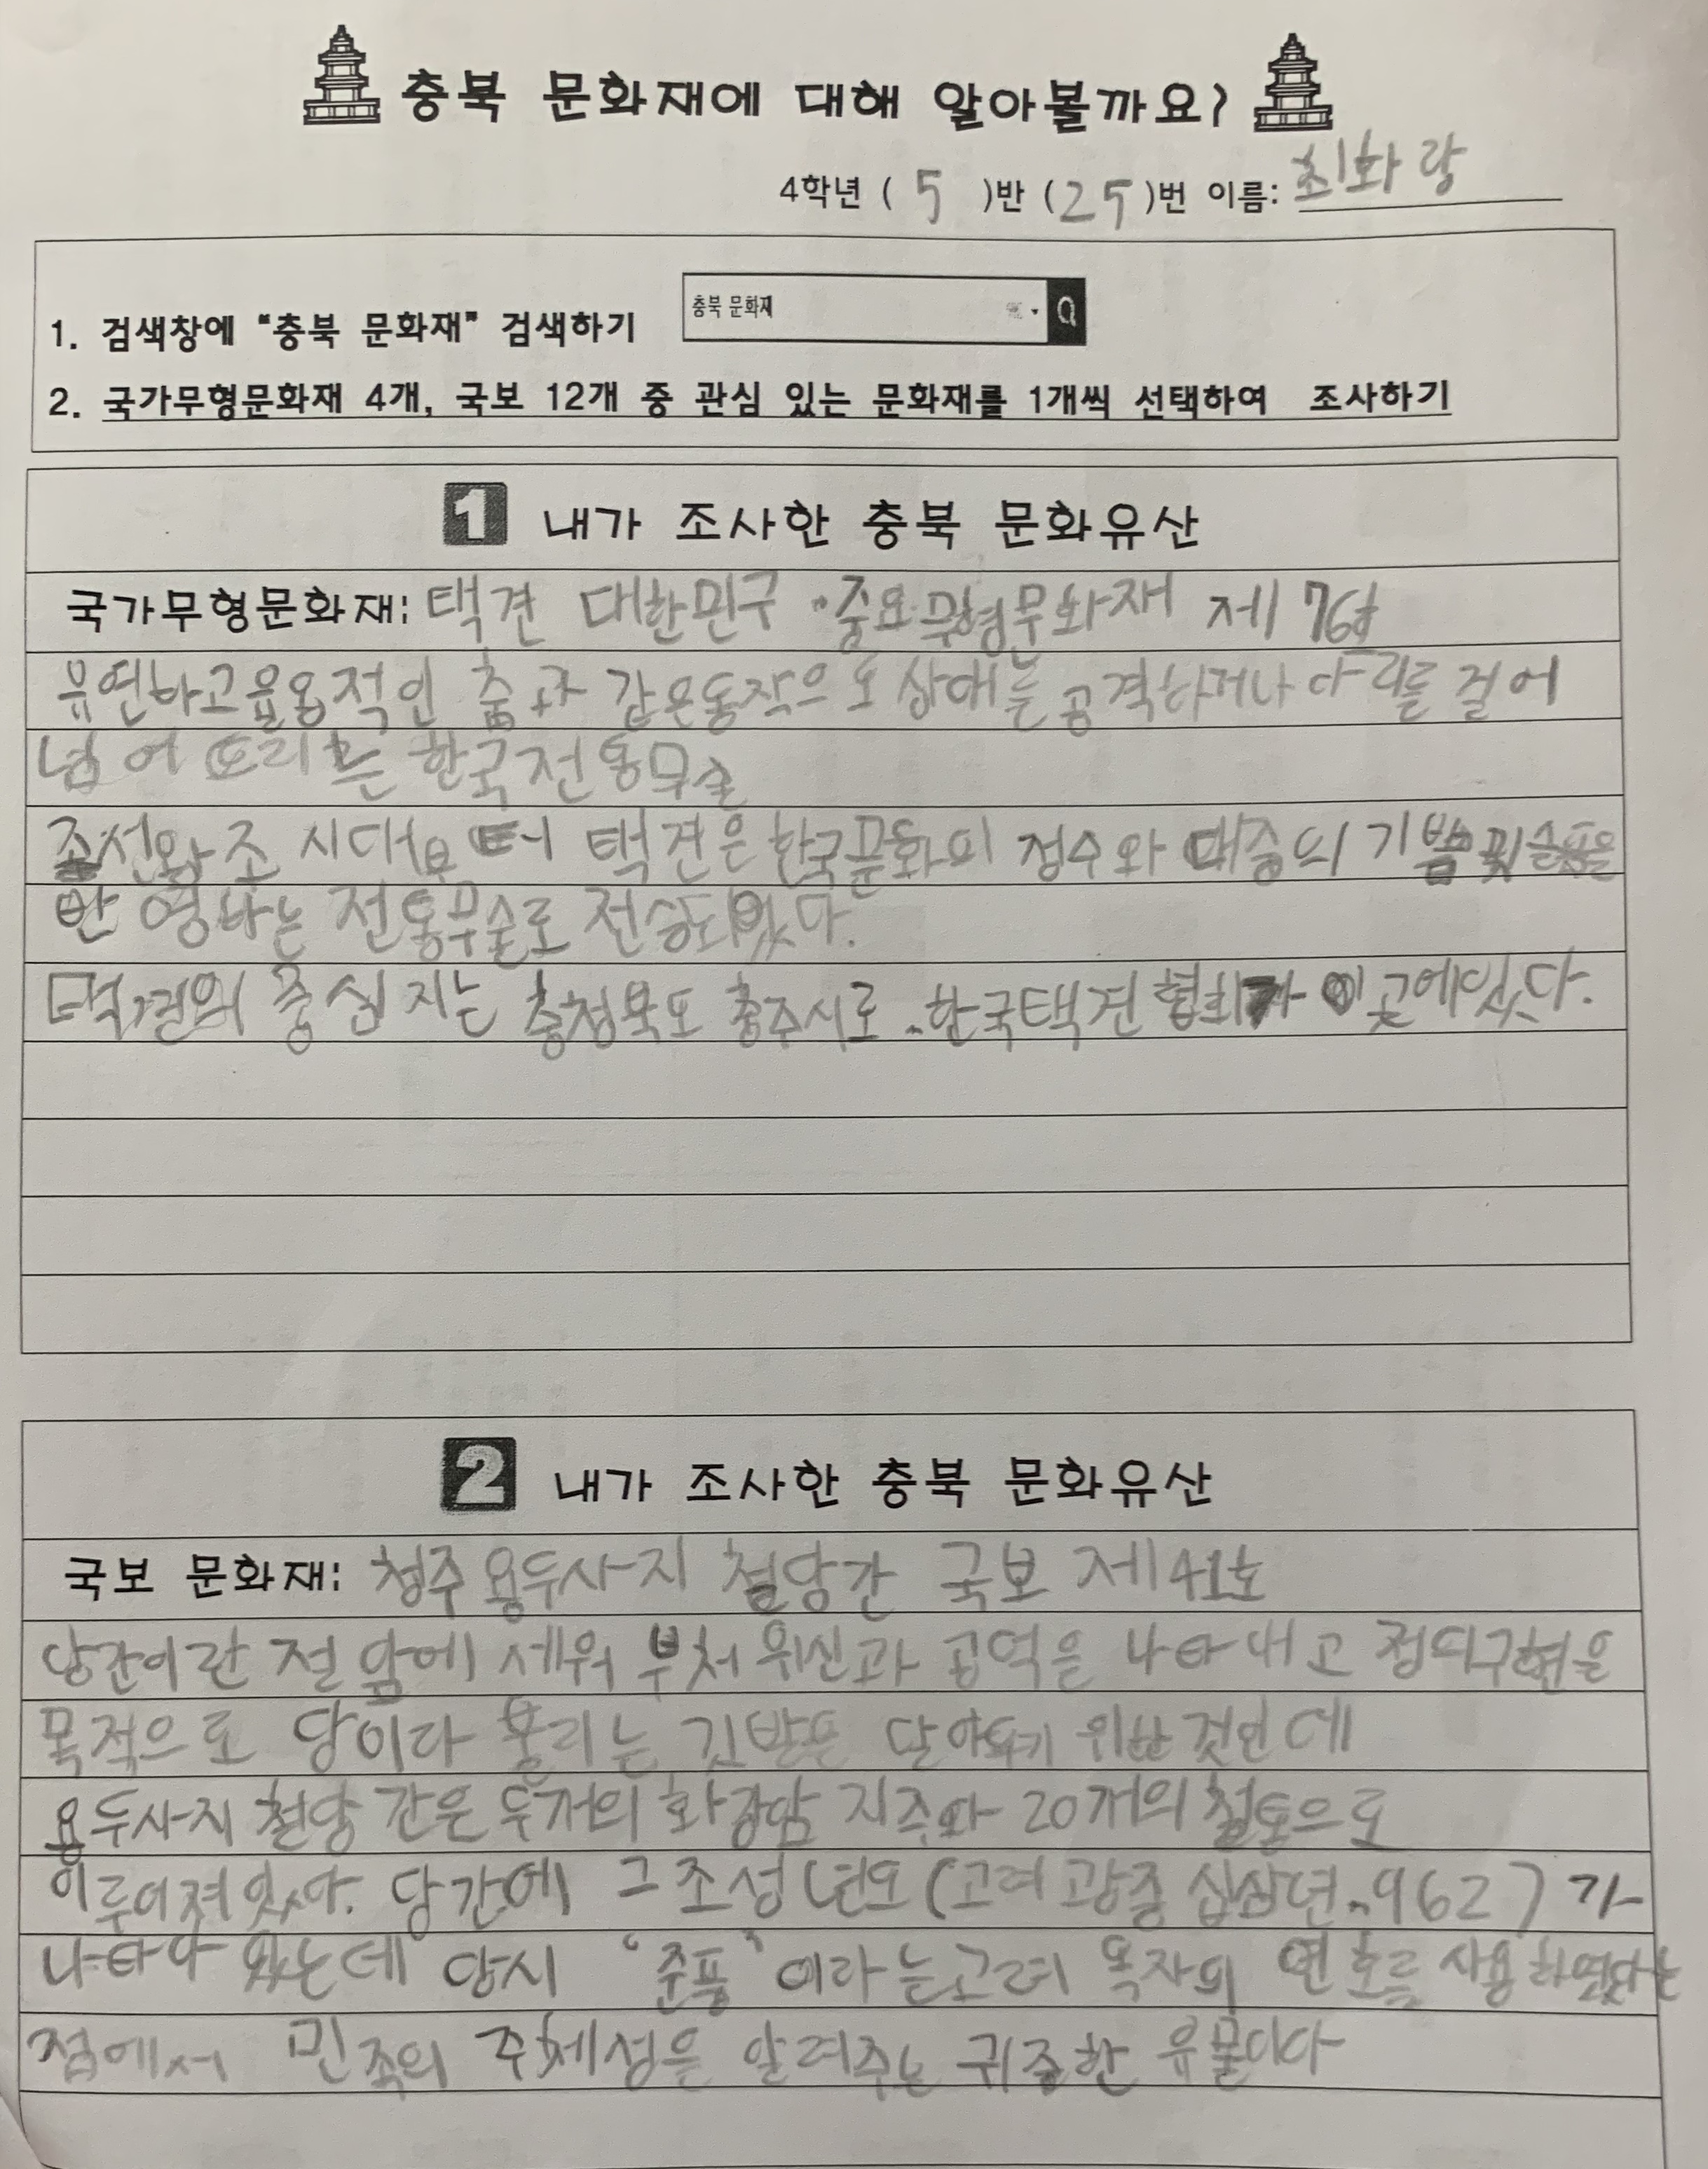 충북 문화재에 대해 알아볼까요?
4학년 ( 5 )반 (25)번 이름: 최화랑
충북 문화재
1. 검색창에 "충북 문화재" 검색하기
2. 국가무형문화재 4개, 국보 12개 중 관심 있는 문화재를 1개씩 선택하여 조사하기
1 내가 조사한 충북 문화유산
국가무형문화재: 택견 대한민국 중요무형문화재 제 76호
유연하고 율동적인 춤과 같은동작으로 상대를 공격하거나 다리를 걸어
넘어뜨리는 한국전통무술
조선왕조 시대부터 택견은 한국문화의 정수와 대중의 기쁨 및 슬픔을
반영하는 전통무술로 전승되었다.
택견의 중심지는 충청북도 충주시로 한국택견협회가 이곳에있다.
2 내가 조사한 충북 문화유산
국보 문화재: 청주용두사지 철당간 국보 제41호
당간이란 절 앞에 세워 부처 위신과 공덕을 나타내고 정의구현을
목적으로 당이라 불리는 깃발을 달아두기 위한 것인데
용두사지 철당간은 두개의 화강암 지주와 20개의 철통으로
이루어져있다. 당간에 그조성년도(고려 광종 십삼년..962)가
나타나 있는데 당시 '준풍'이라는고려 독자의 연호를 사용하였다는
점에서 민족의 주체성을 알려주는 귀중한 유물이다